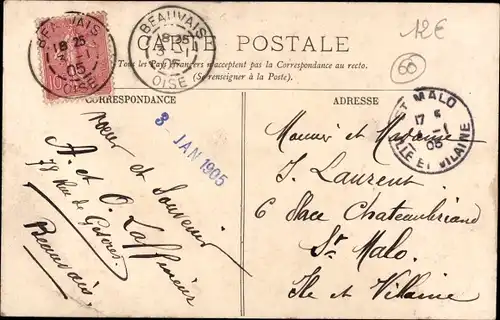 BEAUVAIS
18 25
3 1
05
OISE
BEAUVAIS
18 25
3 1
05
OISE
12€
60
CARTE POSTALE
Tous les Pays étrangers n'acceptent pas la Correspondance au recto.
(Se renseigner à la Poste).
CORRESPONDANCE
ADRESSE
3 JAN 1905
ST MALO
17
-1
05
ILLE ET VILAINE
Voeux et Souvenir
A. et O. Laffineur
78 Rue de Gesvres
Beauvais
Monsieur et Madame
J. Laurent
6 Place Chateaubriand
St Malo.
Ile et Villaine